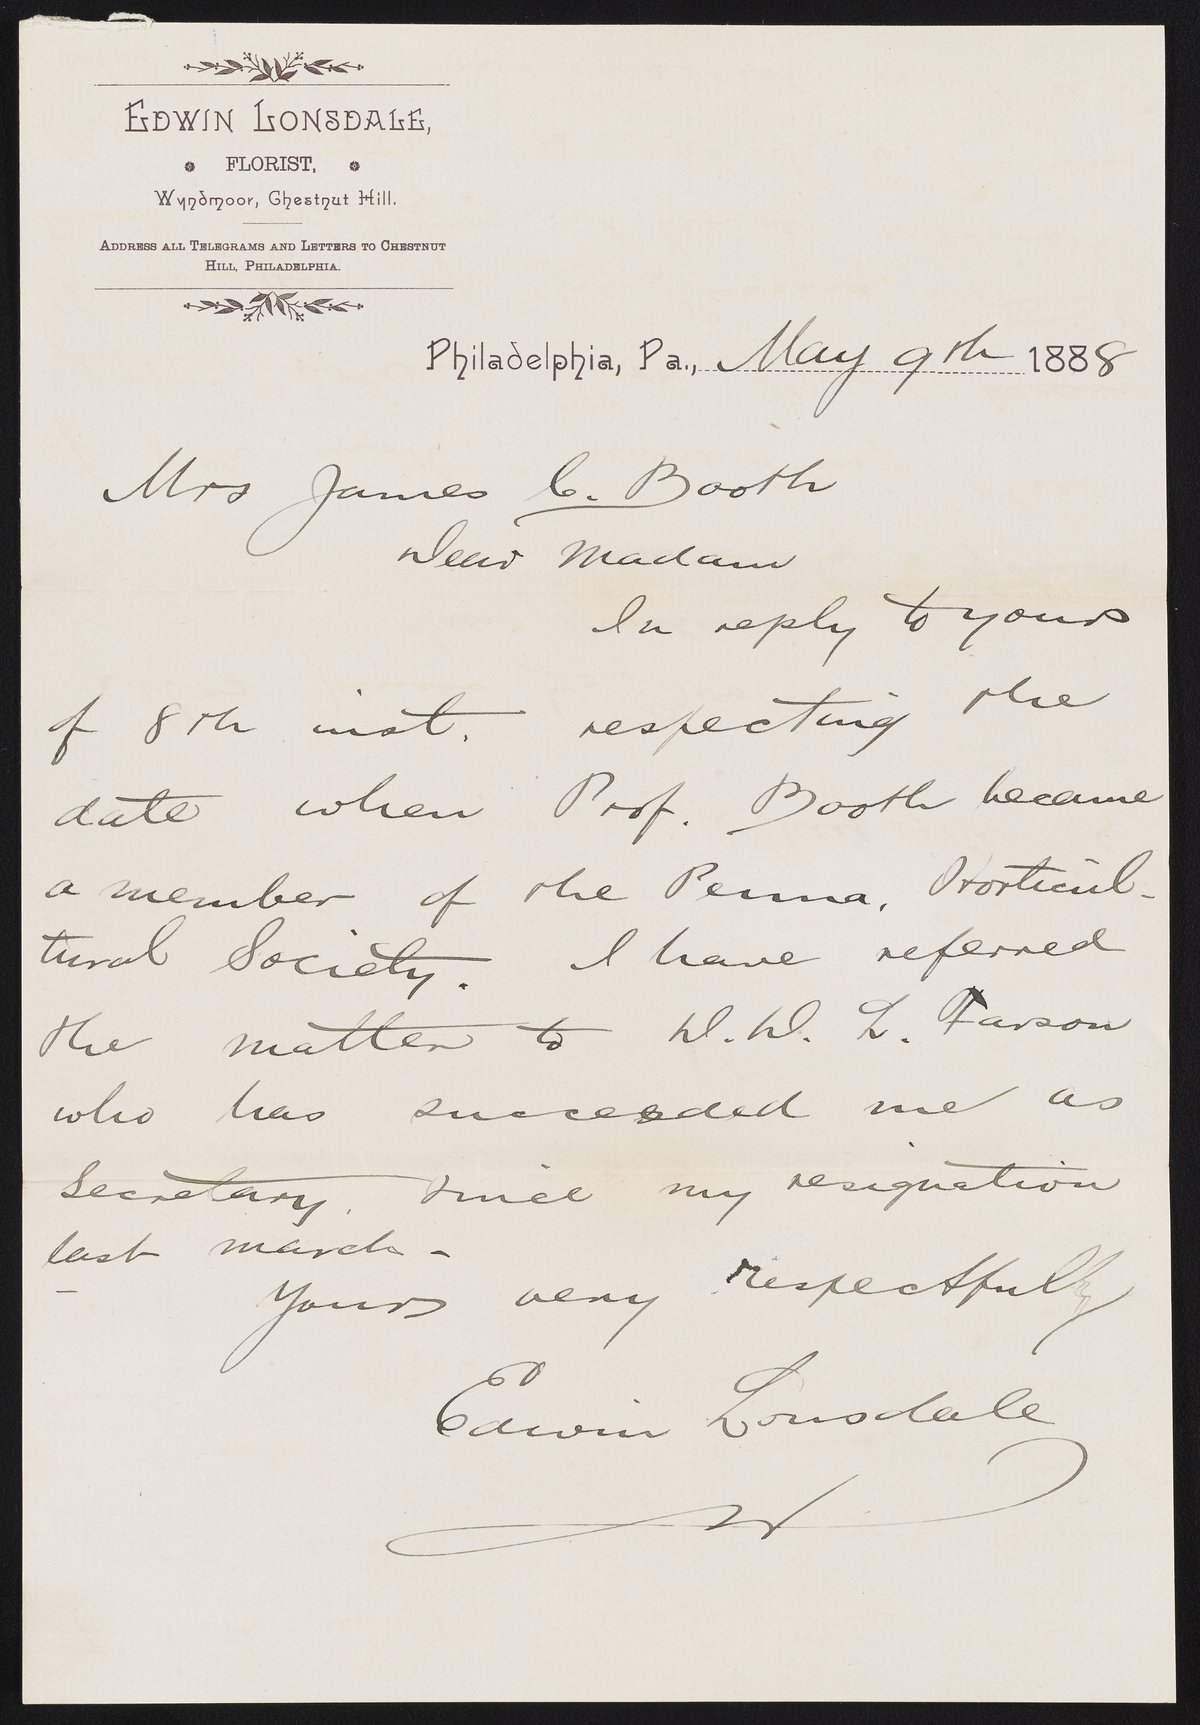 EDWIN LONSDALE,
FLORIST,
Wyndmoor, Chestnut Hill.
ADDRESS ALL TELEGRAMS AND LETTERS TO CHESTNUT
HILL, PHILADELPHIA.
Philadelphia, Pa., May 9th 1888
Mrs James C. Booth
Dear Madam
In reply to yours
of 8th inst. respecting the
date when Prof. Booth became
a member of the Penna. Horticul-
tural Society. I have referred
the matter to D. D. L. Farson
who has succeeded me as
Secretary since my resignation
last march -
Yours very respectfully
Edwin Lonsdale